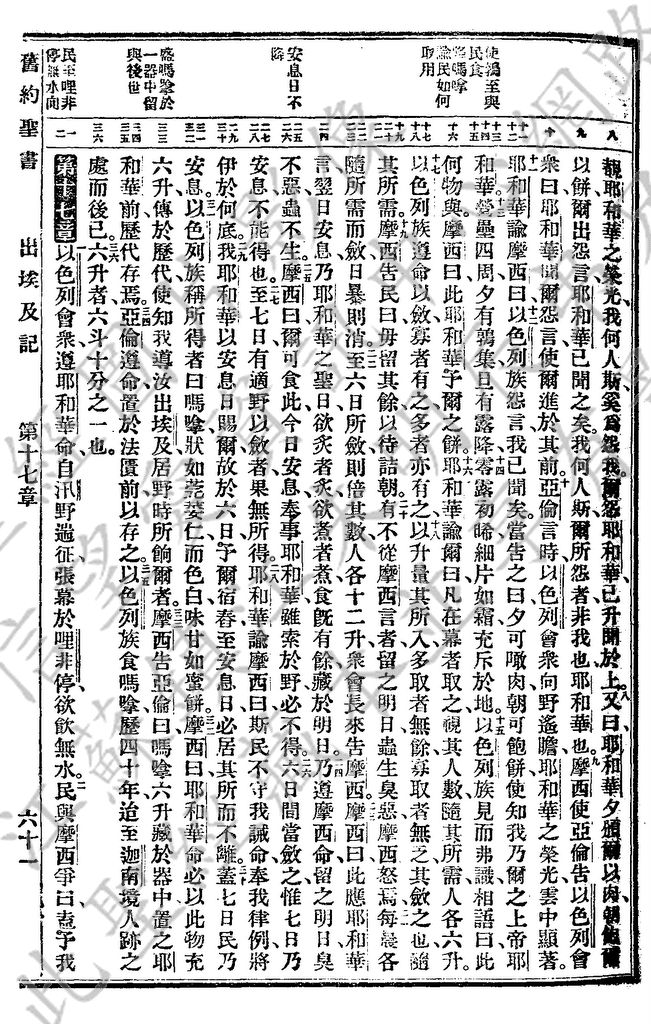 使鶉至與民食
降嗎嗱
諭民如何取用
安息日不降
盛嗎嗱於一器中留與後世
民至哩非停無水向
八
九
十
十一
十二
十三
十四
十五
十六
十七
十八
十九
二十
二一
二二
二三
二四
二五
二六
二七
二八
二九
三十
三一
三二
三三
三四
三五
三六
一
二
覩耶和華之榮光我何人斯奚爲怨我爾怨耶和華已升聞於上又曰耶和華夕頒爾以肉朝飽爾
以餅爾出怨言耶和華已聞之矣我何人斯爾所怨者非我也耶和華也摩西使亞倫告以色列會
衆曰耶和華聞爾怨言使爾進於其前亞倫言時以色列會衆向野遙瞻耶和華之榮光雲中顯著
耶和華諭摩西曰以色列族怨言我已聞矣當告之曰夕可噉肉朝可飽餅使知我乃爾之上帝耶
和華營壘四周夕有鶉集旦有露降零露初晞細片如霜充斥於地以色列族見而弗識相語曰此
何物與摩西曰此耶和華予爾之餅耶和華諭爾曰凡在幕者取之視其人數隨其所需人各六升
以色列族遵命以斂寡者有之多者亦有之以升量其所入多取者無餘寡取者無乏其斂之也隨
其所需摩西告民曰毋留其餘以待詰朝有不從摩西言者留之明日蟲生臭惡摩西怒焉每晨各
隨所需而斂日暴則消至六日所斂則倍其數人各十二升衆會長來告摩西摩西曰此應耶和華
言翌日安息乃耶和華之聖日欲炙者炙欲煮者煮食旣有餘藏於明日乃遵摩西命留之明日臭
不惡蟲不生摩西曰爾可食此今日安息奉事耶和華雖索於野必不得六日間當斂之惟七日乃
安息不能得也至七日有適野以斂者果無所得耶和華諭摩西曰斯民不守我誡命奉我律例將
伊於何底我耶和華以安息日賜爾故於六日予爾宿舂至安息日必居其所而不離蓋七日民乃
安息以色列族稱所得者曰嗎嗱狀如芫荽仁而色白味甘如蜜餅摩西曰耶和華命必以此物充
六升傳於歷代使知我導汝出埃及居野時所餉爾者摩西告亞倫曰嗎嗱六升藏於器中置之耶
和華前歷代存焉亞倫遵命置於法匱前以存之以色列族食嗎嗱歷四十年迨至迦南境人跡之
處而後已六升者六斗十分之一也
第十七章以色列會衆遵耶和華命自汛野遄征張幕於哩非停欲飲無水民與摩西爭曰盍予我
舊約聖書 出埃及記 第十七章 六十一